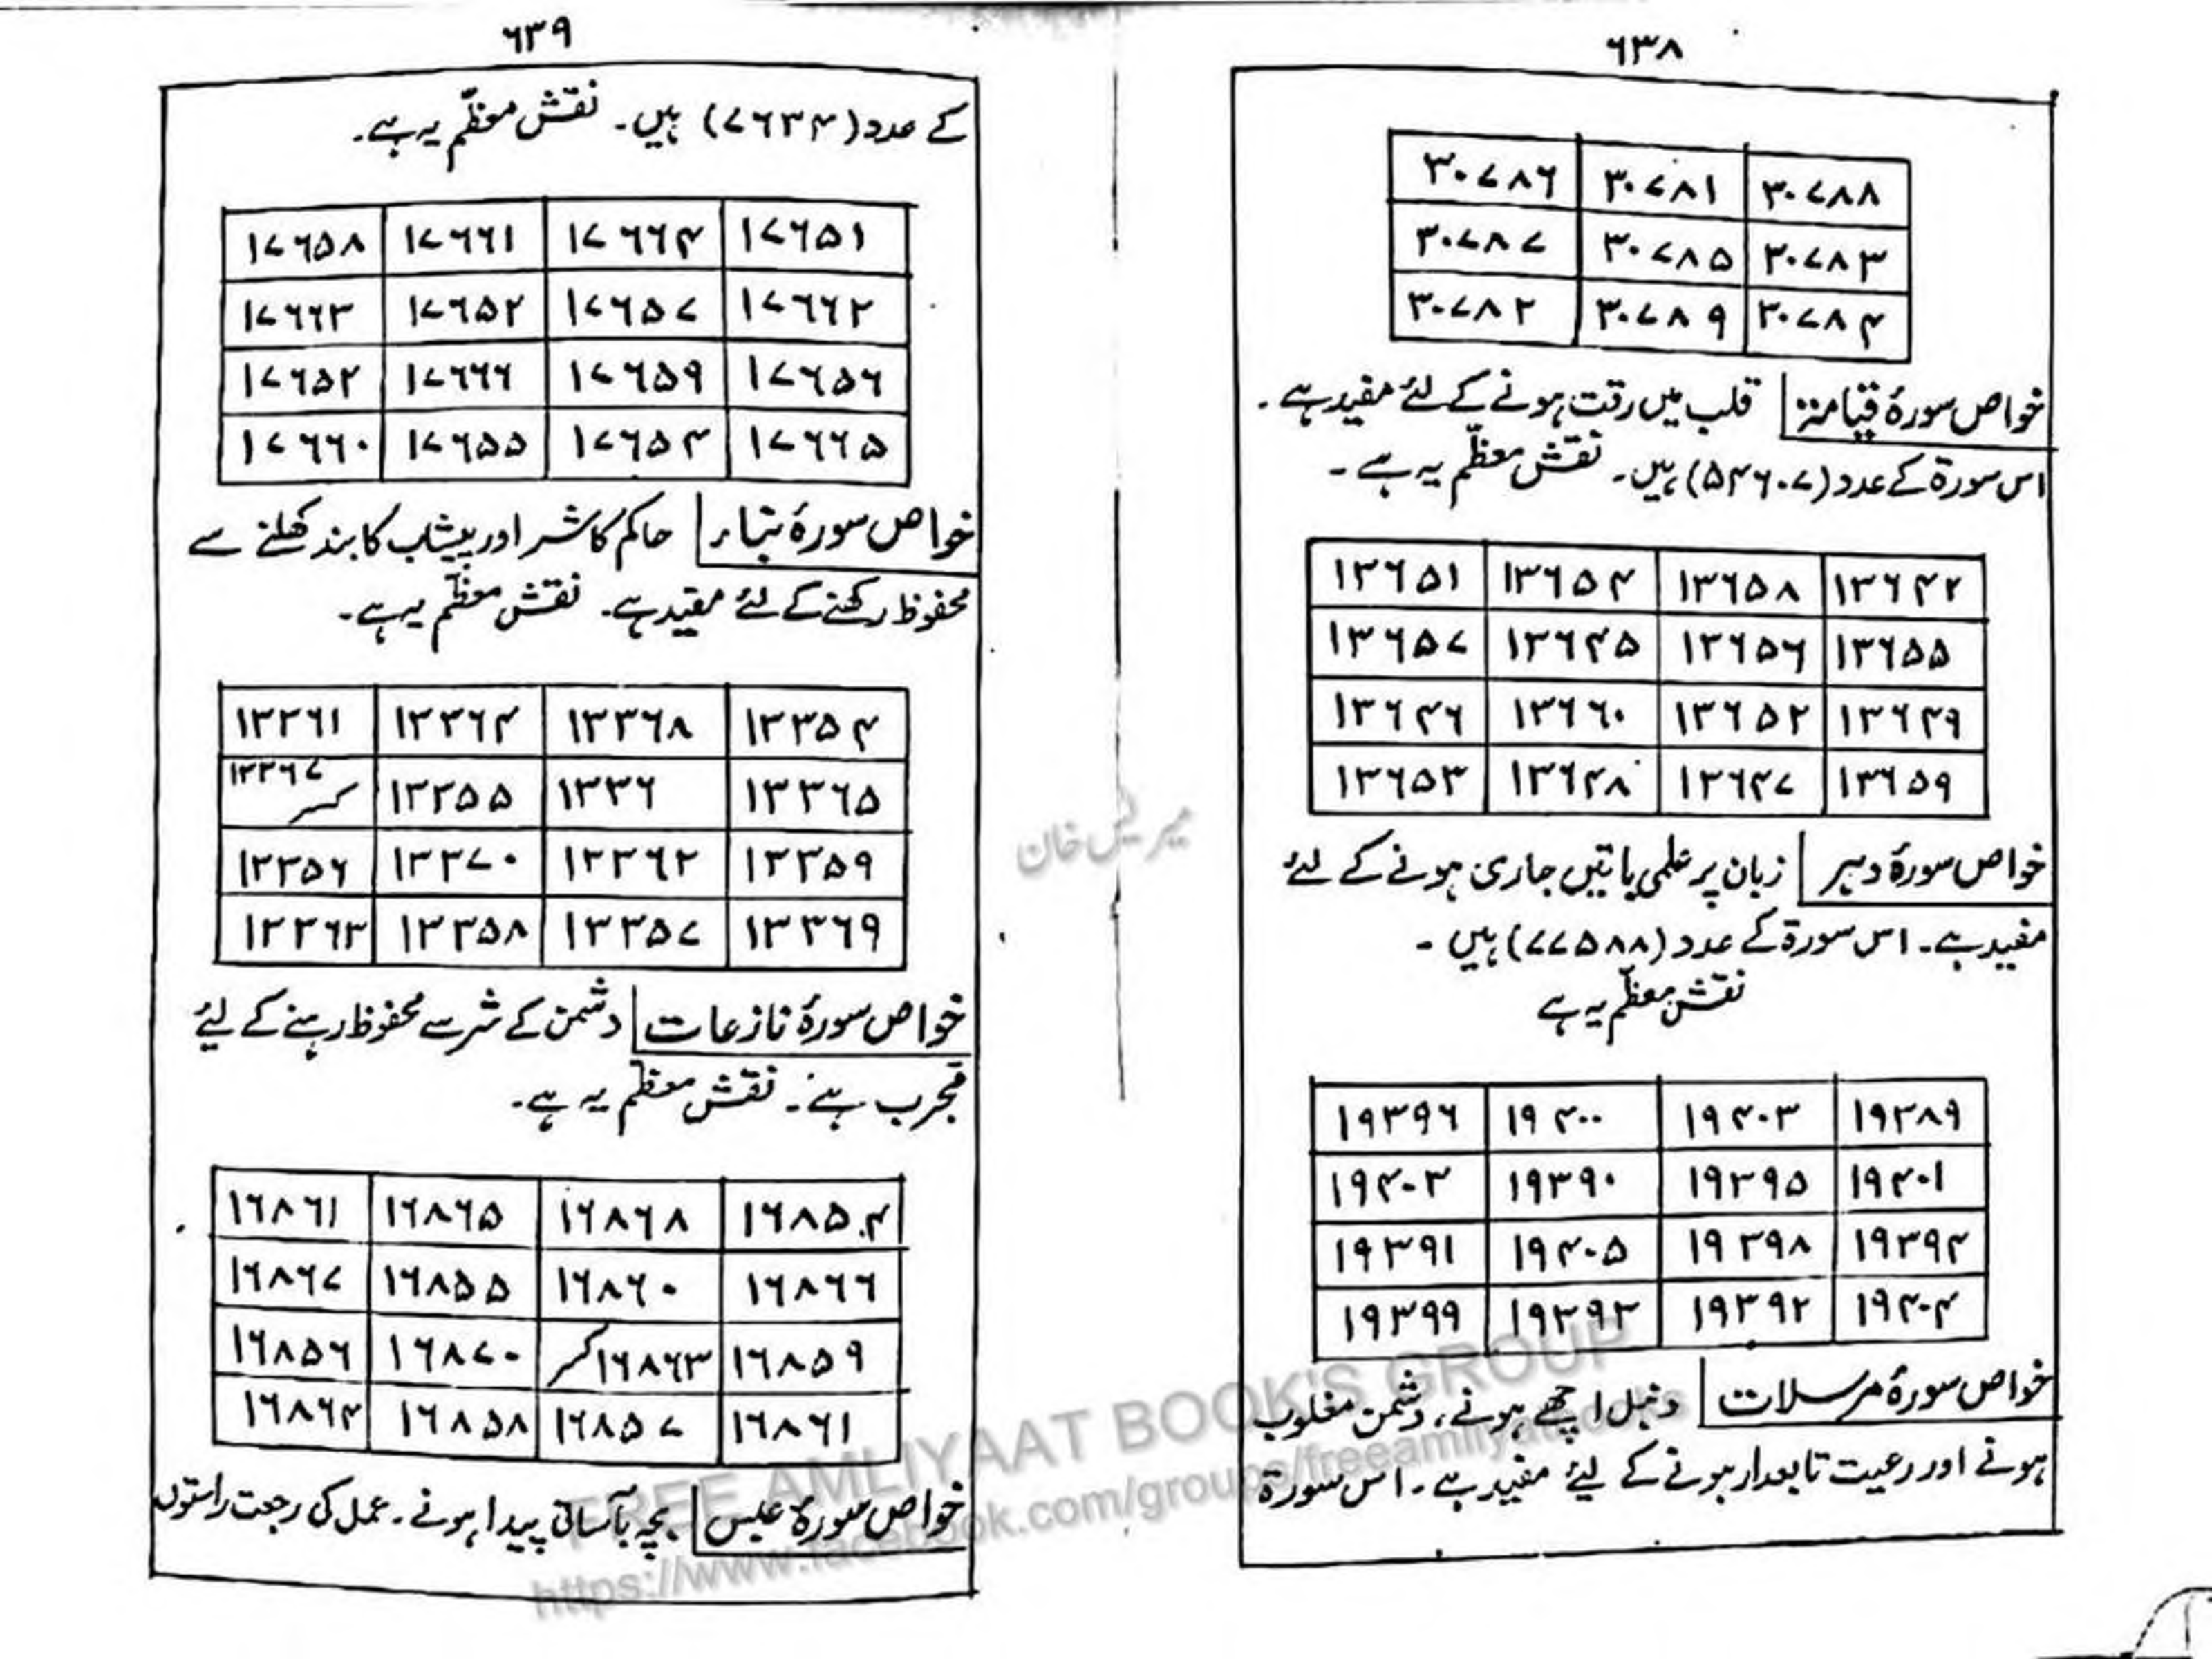 ۶۳۸
۳۰۷۸۶ ۳۰۷۸۱ ۳۰۷۸۸
۳۰۷۸۷ ۳۰۷۸۵ ۳۰۷۸۳
۳۰۷۸۲ ۳۰۷۸۹ ۳۰۷۸۴
خواص سورۂ قیامتہ قلب میں رقت ہونے کے لئے مفید ہے۔
اس سورۃ کے عدد (۵۴۶۰۷) ہیں۔ نقش معظّم یہ ہے۔
۱۳۶۵۱ ۱۳۶۵۴ ۱۳۶۵۸ ۱۳۶۴۲
۱۳۶۵۷ ۱۳۶۴۵ ۱۳۶۵۶ ۱۳۶۵۵
۱۳۶۴۶ ۱۳۶۶۰ ۱۳۶۵۲ ۱۳۶۴۹
۱۳۶۵۳ ۱۳۶۴۸ ۱۳۶۴۷ ۱۳۶۵۹
خواص سورۂ دہر زبان پر علمی باتیں جاری ہونے کے لئے
مفید ہے۔ اس سورۃ کے عدد (۷۷۵۸۸) ہیں۔
نقش معظّم یہ ہے
۱۹۳۹۶ ۱۹۴۰۰ ۱۹۴۰۳ ۱۹۳۸۹
۱۹۴۰۳ ۱۹۳۹۰ ۱۹۳۹۵ ۱۹۴۰۱
۱۹۳۹۱ ۱۹۴۰۵ ۱۹۳۹۸ ۱۹۳۹۴
۱۹۳۹۹ ۱۹۳۹۳ ۱۹۳۹۲ ۱۹۴۰۴
خواص سورۂ مرسلات دنبل اچھے ہونے، دشمن مغلوب
ہونے اور رعیت تابعدار ہونے کے لیئے مفید ہے۔ اس سورۃ
۶۳۹
کے عدد (۷۶۳۴) ہیں۔ نقش معظّم یہ ہے۔
۱۷۶۵۸ ۱۷۶۶۱ ۱۷۶۶۴ ۱۷۶۵۱
۱۷۶۶۳ ۱۷۶۵۲ ۱۷۶۵۷ ۱۷۶۶۲
۱۷۶۵۲ ۱۷۶۶۶ ۱۷۶۵۹ ۱۷۶۵۶
۱۷۶۶۰ ۱۷۶۵۵ ۱۷۶۵۴ ۱۷۶۶۵
خواص سورۂ نباء حاکم کا شر اور پیشاب کا بند کھلنے سے
محفوظ رکھنے کے لئے مفید ہے۔ نقش معظّم یہ ہے۔
۱۳۳۶۱ ۱۳۳۶۴ ۱۳۳۶۸ ۱۳۳۵۴
۱۳۳۶۷ کسر ۱۳۳۵۵ ۱۳۳۶ ۱۳۳۶۵
۱۳۳۵۶ ۱۳۳۷۰ ۱۳۳۶۲ ۱۳۳۵۹
۱۳۳۶۳ ۱۳۳۵۸ ۱۳۳۵۷ ۱۳۳۶۹
خواص سورۂ نازعات دشمن کے شر سے محفوظ رہنے کے لیئے
مجرب ہے۔ نقش معظّم یہ ہے۔
۱۶۸۶۱ ۱۶۸۶۵ ۱۶۸۶۸ ۱۶۸۵۴
۱۶۸۶۷ ۱۶۸۵۵ ۱۶۸۶۰ ۱۶۸۶۶
۱۶۸۵۶ ۱۶۸۷۰ ۱۶۸۶۳ کسر ۱۶۸۵۹
۱۶۸۶۴ ۱۶۸۵۸ ۱۶۸۵۷ ۱۶۸۶۱
خواص سورۂ عبس بچہ بآسانی پیدا ہونے۔ عمل کی رجعت راستوں
FREE AMLIYAAT BOOK'S GROUP
https://www.facebook.com/groups/freeamliyatbooks